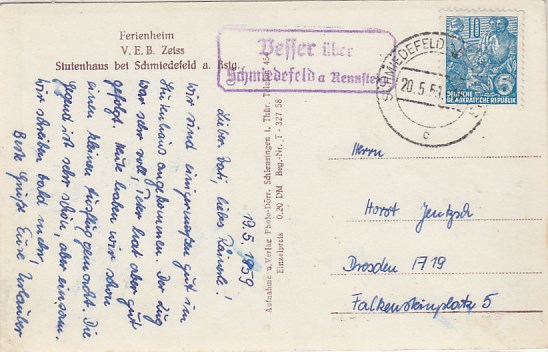 Ferienheim
V. E. B. Zeiss
Stutenhaus bei Schmiedefeld a. Rstg.
Vesser über
Schmiedefeld a Rennsteig
SCHMIEDEFELD
20.5.59
c
10
5
DEUTSCHE
DEMOKRATISCHE REPUBLIK
19.5.1959
Lieber Vati, liebes Männerle!
Wir sind einigermaßen gut im
Stutenhaus angekommen. Der Zug
war sehr voll, Peter hat aber gut
gefolgt. Heute haben wir schon
einen kleinen Ausflug gemacht. Die
Gegend ist sehr schön, aber einsam.
Wir schreiben bald mehr,
Beste Grüße Eure Urlauber
Aufnahme u. Verlag Photo-Dörr, Schleusingen i. Thür. Telefon 454
Einzelpreis 0.20 DM Reg.-Nr. T - 327 58
Herrn
Horst Jentzsch
Dresden A 19
Falkensteinplatz 5